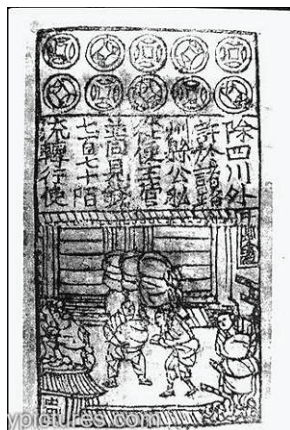 除四川外
許於諸路
州縣公私
從便主管
並同見錢
七百七十陌
流轉行使
ypictures.com